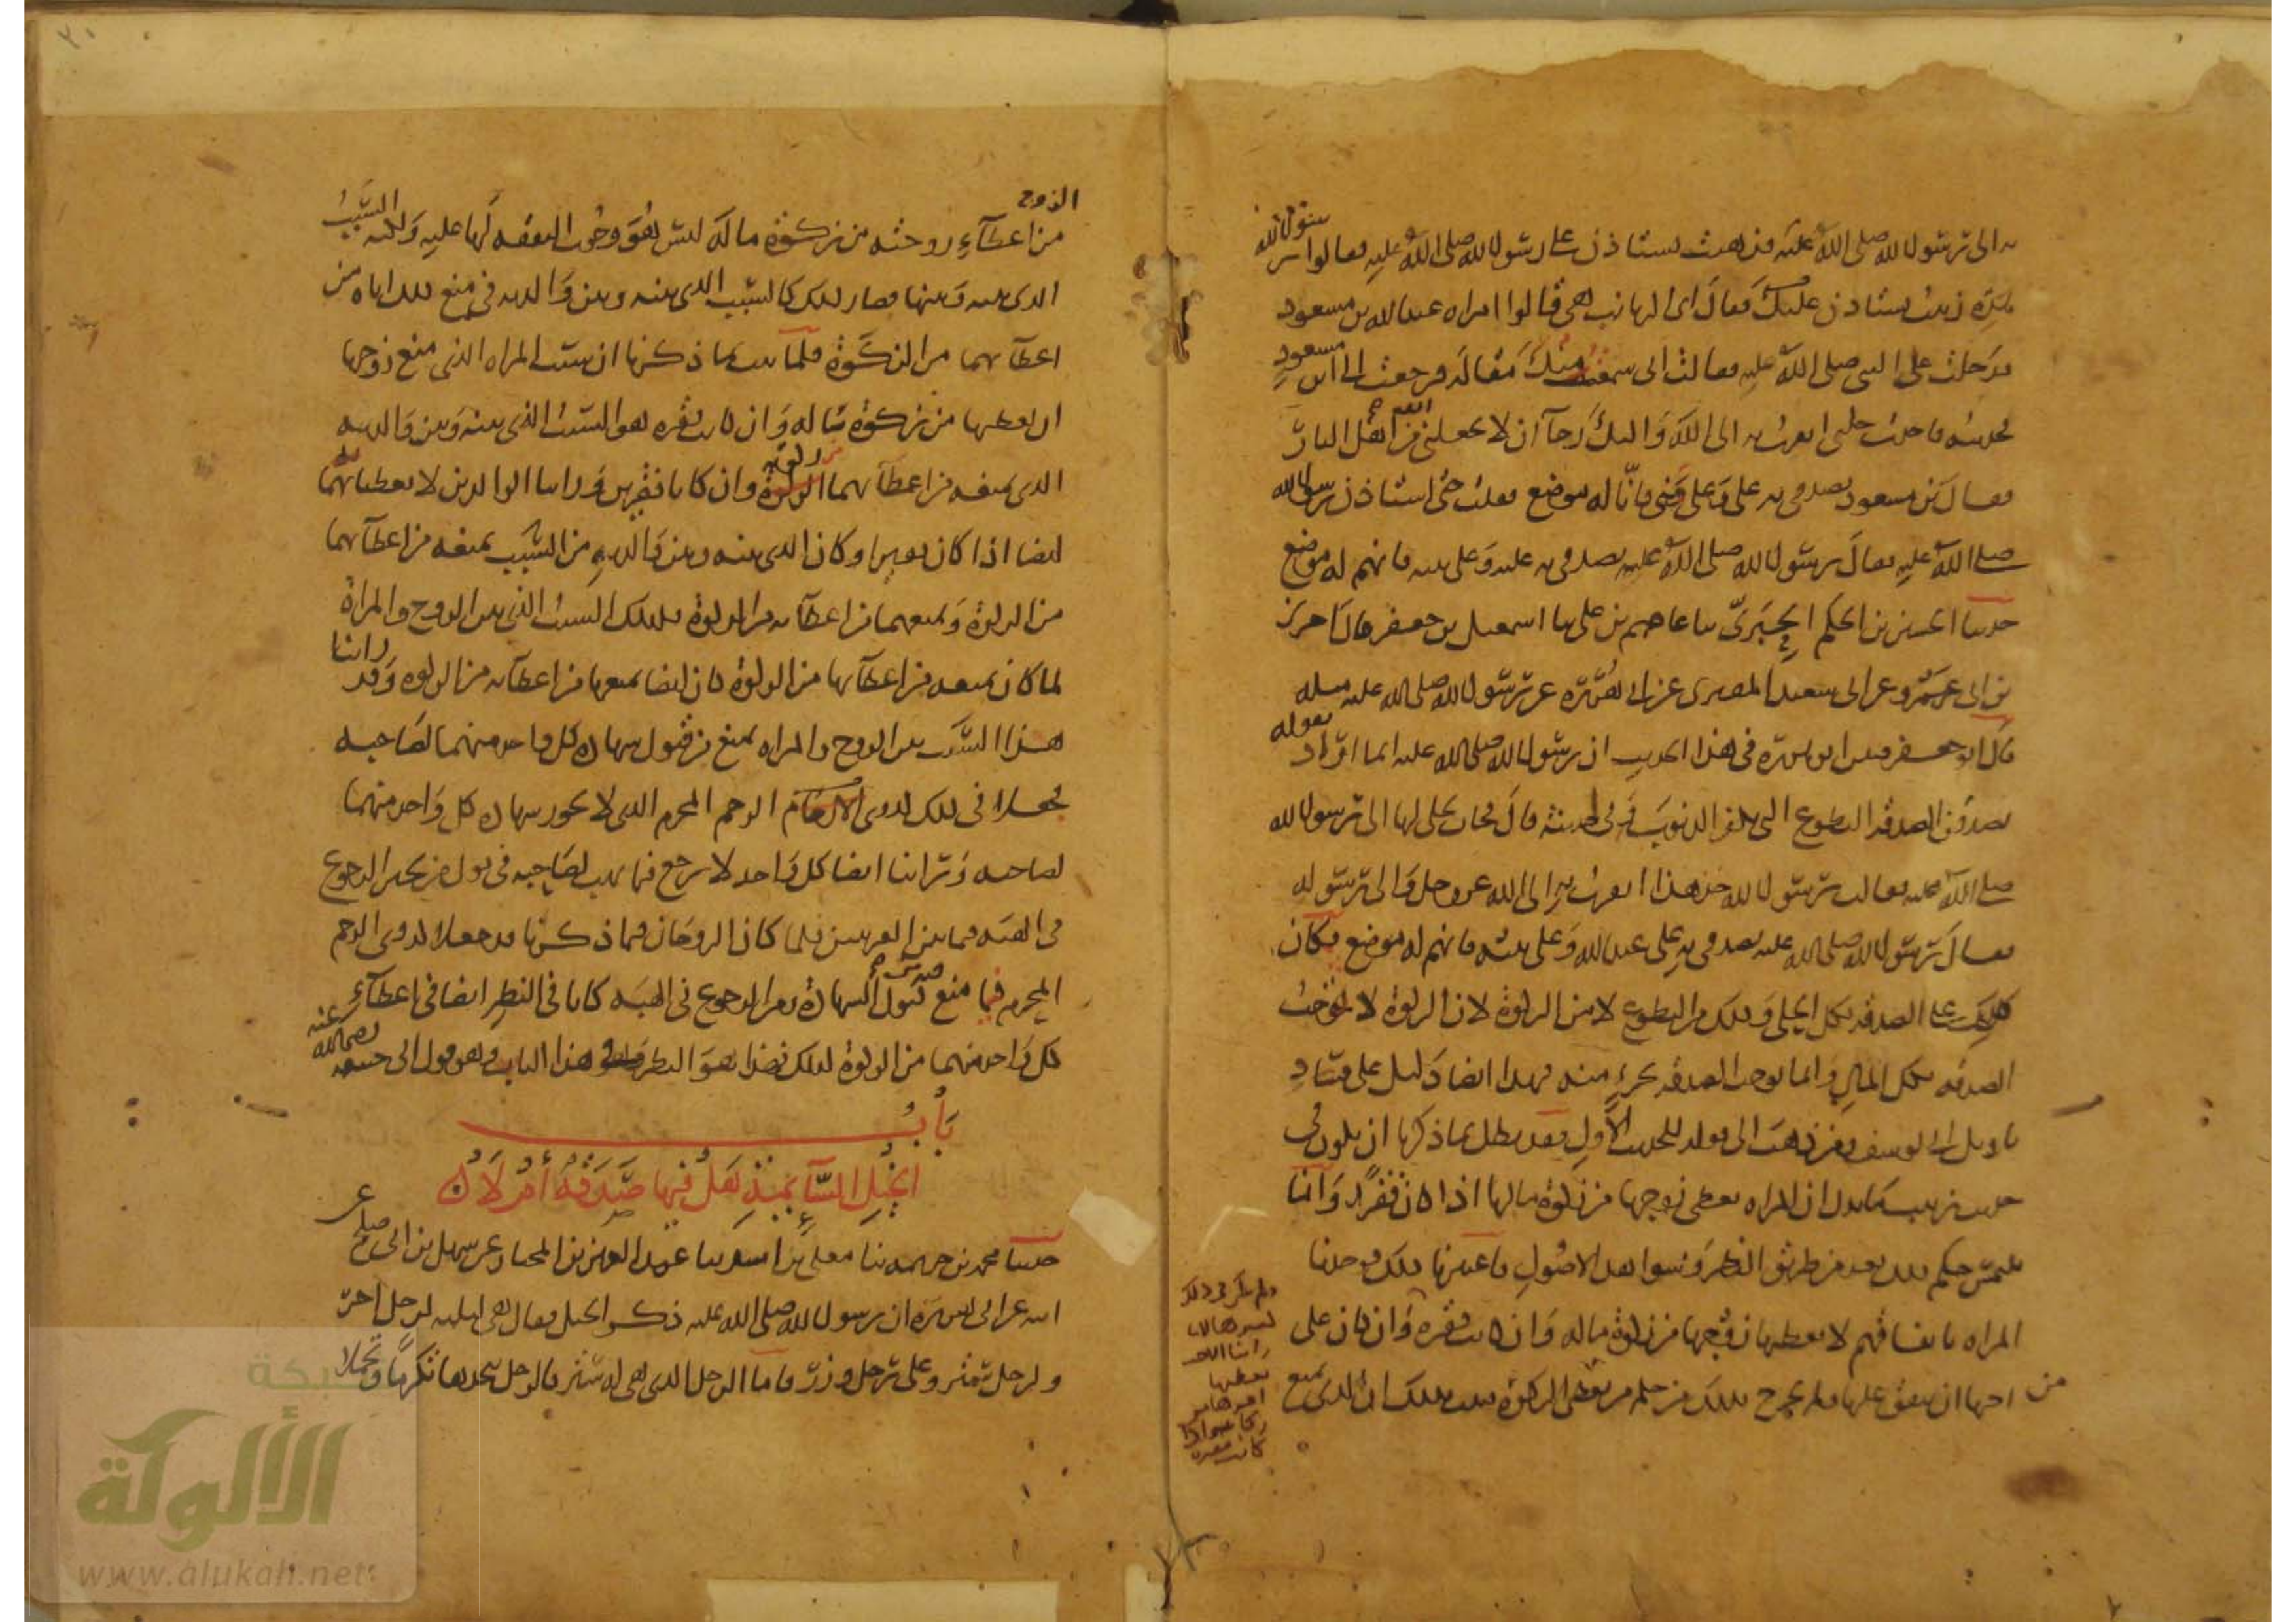 به الى رسول الله صلى الله عليه فذهبت تستاذن على رسول الله صلى الله عليه فقالوا يرسول الله
هذه زينب تستاذن عليك فقال اى الزيانب هى قالوا امراه عبد الله بن مسعود
فدخلت على النبى صلى الله عليه فقالت انى سمعت منك مقاله فرجعت الى ابن مسعود
فحدثته فاخذت حليى اتقرب به الى الله واليك رجآ ان لا يجعلنى من اهل النار
فقال بن مسعود تصدقى به على وعلى بنى فانا له موضع فقلت حتى استاذن رسول الله
صلى الله عليه فقال رسول الله صلى الله عليه تصدقى به عليه وعلى بنيه فانهم له موضع
حدثنا الحسين بن الحكم الحبرى ثنا عاصم بن على ثنا اسمعيل بن جعفر قال اخبرنى
بن ابى عمرو عن ابى سعيد المقبرى عن ابى هريره عن رسول الله صلى الله عليه مثله
قال ابو جعفر فبين ابو هريره فى هذا الحديث ان رسول الله صلى الله عليه انما اراد بقوله
تصدقن الصدقه التطوع التى تكفر الذنوب وفى حديثه قال فجات بحلى لها الى رسول الله
صلى الله عليه فقالت يرسول الله خذ هذا اتقرب به الى الله عز وجل والى رسوله
فقال رسول الله صلى الله عليه تصدقى به على عبد الله وعلى بنيه فانهم له موضع فكان
ذلك على الصدقه بكل الحلى وذلك من التطوع لا من الزكوة لان الزكوة لا توجب
الصدقه بكل المال وانما توجب الصدقه بجزء منه فهذا ايضا دليل على فساد
تاويل ابى يوسف ومن ذهب الى قوله للحديث الاول فقد بطل بما ذكرنا ان يكون فى
حديث زينب ما يدل ان المراه تعطى زوجها من زكوة مالها اذا كان فقيرا وانا
نلتمس حكم ذلك بعد من طريق النظر وشواهد الاصول فاعتبرنا ذلك فوجدنا
المراه باتفاقهم لا يعطيها زوجها من زكوة ماله وان كانت فقيره وان كان على
من احها ان ينفق عليها ولم يخرج بذلك من حكم من يعطى الزكوة فثبت بذلك ان الذى يمنع
ولم تكن فى ذلك
كغيرها لانا
راينا الاخت
يعطيها
اخوها من
زكاته اذا
كانت فقيره
الزوج
من اعطآء زوجته من زكوة ماله ليس هو وجوب النفقه لها عليه ولكنه السبب
الذى بينه وبينها فصار ذلك كالسبب الذى بينه وبين والديه فى منع ذلك اياه من
اعطآئهما من الزكوة فلما ثبت بما ذكرنا ان سبب المراه الذى منع زوجها
ان يعطيها من زكوة ماله وان كانت فقيره هو السبب الذى بينه وبين والديه
الذى يمنعه من اعطآئهما من زكوته وان كانا فقيرين وراينا الوالدين لا يعطيانه
ايضا اذا كان فقيرا وكان الذى بينه وبين والديه من السبب يمنعه من اعطآئهما
من الزكوة ويمنعهما من اعطآئه من الزكوة فكذلك السبب الذى بين الزوج والمراة
لما كان يمنعه من اعطآئها من الزكوة كان ايضا يمنعها من اعطآئه من الزكوه وقد راينا
هذا السبب بين الزوج والمراه يمنع من قبول شهادة كل واحد منهما لصاحبه
فجعلا فى ذلك كذوى الرحم المحرم الذى لا تجوز شهادة كل واحد منهما
لصاحبه وراينا ايضا كل واحد لا يرجع فيما يهب لصاحبه فى قول من يجيز الرجوع
فى الهبه فيما بين القريبين فلما كان الزوجان فيما ذكرنا قد جعلا كذوى الرحم
المحرم فيما منع من قبول الشهادة ومن الرجوع فى الهبه كانا فى النظر ايضا فى اعطآء
كل واحد منهما من الزكوة كذلك فهذا هو النظر فى هذا الباب وهو قول ابى حنيفه رضى الله عنه
باب
الخيل السآئمة هل فيها صدقة أم لا
حدثنا محمد بن خزيمه ثنا معلى بن اسد ثنا عبد العزيز بن المختار عن سهيل بن ابى صلح عن
ابيه عن ابى هريره ان رسول الله صلى الله عليه ذكر الخيل فقال هى لثلثه لرجل اجر
ولرجل ستر وعلى رجل وزر فاما الرجل الذى هى له ستر فالرجل يتخذها تكرما وتجملا
شبكة
الألوكة
www.alukah.net